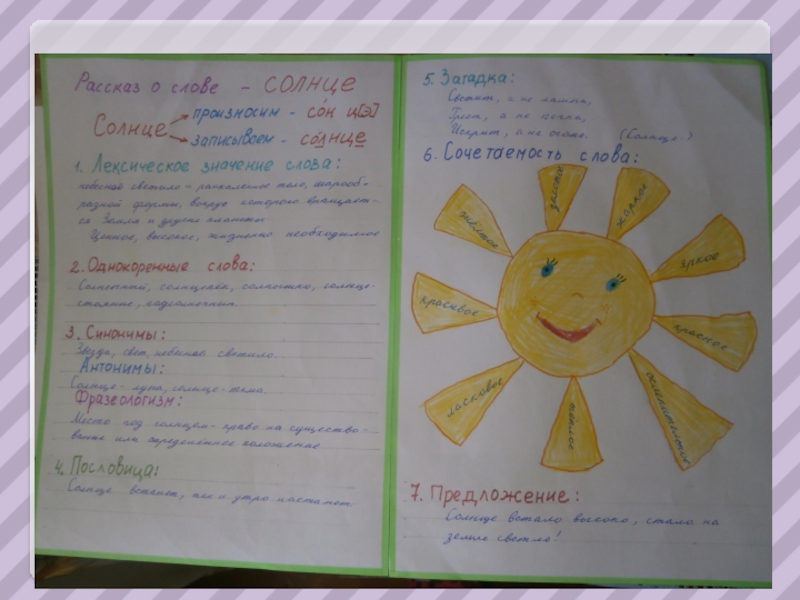 Рассказ о слове - СОЛНЦЕ
Солнце
произносим - со́н ц[э]
записываем - со́лнце
1. Лексическое значение слова:
небесное светило - раскаленное тело, шарооб-
разной формы, вокруг которого вращает-
ся Земля и другие планеты
Ценное, высокое, жизненно необходимое
2. Однокоренные слова:
Солнечный, солнцепёк, солнышко, солнце-
стояние, подсолнечник.
3. Синонимы:
Звезда, свет, небесное светило.
Антонимы:
Солнце - луна, солнце - тьма.
Фразеологизм:
Место под солнцем - право на существо-
вание или определённое положение
4. Пословица:
Солнце встанет, так и утро настанет.
5. Загадка:
Светит, а не лампа,
Греет, а не печка,
(Солнце.)
6. Сочетаемость слова:
золотое
жаркое
яркое
красное
ослепительное
тёплое
ласковое
красивое
жёлтое
7. Предложение:
Солнце встало высоко, стало на
земле светло!